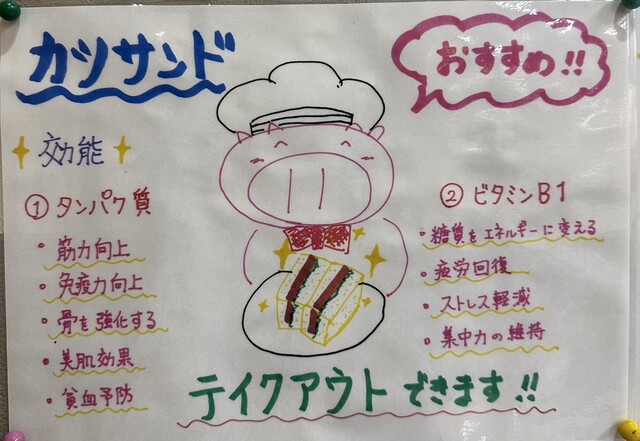 カツサンド
おすすめ!!
効能
① タンパク質
・筋力向上
・免疫力向上
・骨を強化する
・美肌効果
・貧血予防
② ビタミンB1
・糖質をエネルギーに変える
・疲労回復
・ストレス軽減
・集中力の維持
テイクアウトできます!!